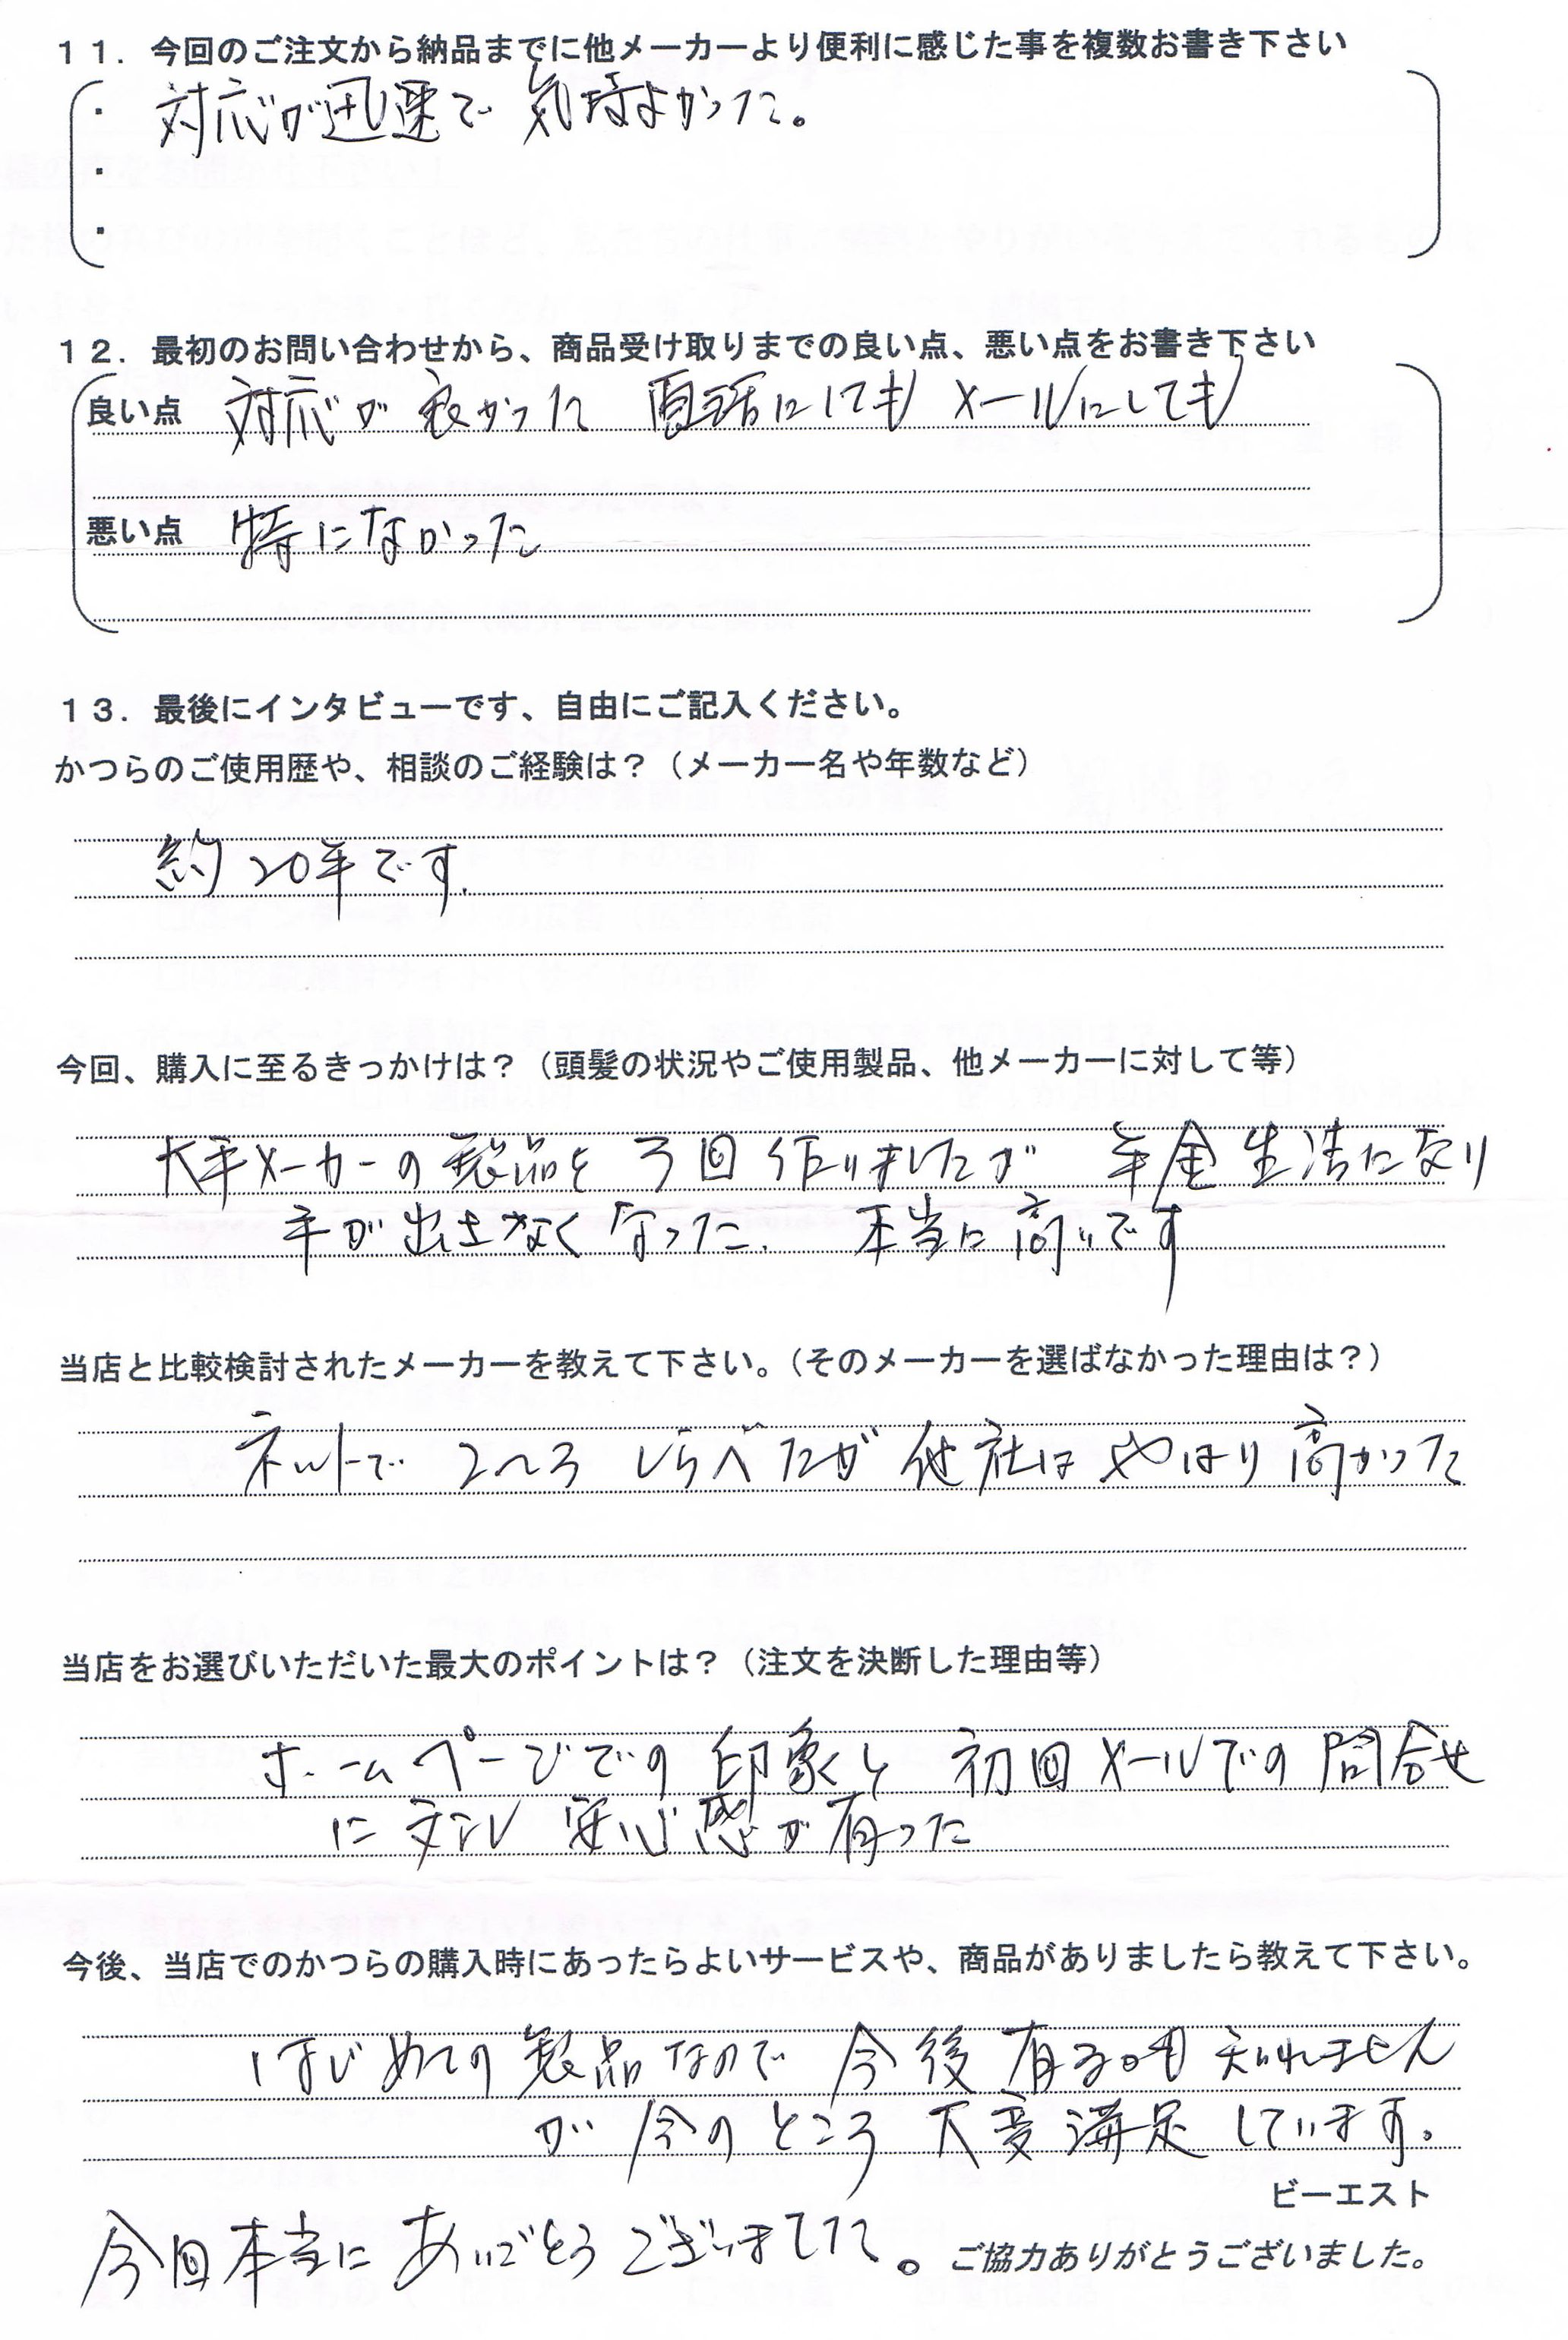 11．今回のご注文から納品までに他メーカーより便利に感じた事を複数お書き下さい
・ 対応が迅速で 気持よかった。
・
・
12．最初のお問い合わせから、商品受け取りまでの良い点、悪い点をお書き下さい
良い点 対応が良かった 電話にしても メールにしても
悪い点 特になかった
13．最後にインタビューです、自由にご記入ください。
かつらのご使用歴や、相談のご経験は？（メーカー名や年数など）
約20年です.
今回、購入に至るきっかけは？（頭髪の状況やご使用製品、他メーカーに対して等）
大手メーカーの製品を 3回 作りましたが 年金生活になり
手が出せなくなった. 本当に高いです
当店と比較検討されたメーカーを教えて下さい。（そのメーカーを選ばなかった理由は？）
ネットで 2〜3 しらべたが 他社は やはり高かった
当店をお選びいただいた最大のポイントは？（注文を決断した理由等）
ホームページでの 印象と 初回メールでの 問合せ
に対し 安心感が有った
今後、当店でのかつらの購入時にあったらよいサービスや、商品がありましたら教えて下さい。
はじめての 製品なので 今後 有るかも 知れません
が 今のところ 大変満足しています。
ビーエスト
今回本当に ありがとうございました。
ご協力ありがとうございました。